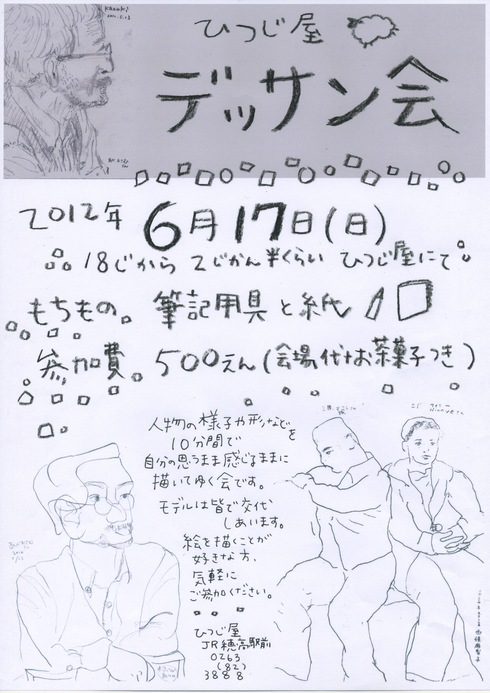 ひつじ屋
デッサン会
2012年 6月17日(日)
18じから 2じかん半くらい ひつじ屋にて
もちもの 筆記用具と紙
参加費 500えん(会場代+お茶菓子つき)
人物の様子や形などを
10分間で
自分の思うまま感じるままに
描いてゆく会です。
モデルは皆で交代
しあいます。
絵を描くことが
好きな方、
気軽に
ご参加ください。
ひつじ屋
JR穂高駅前
0263
(82)
3888